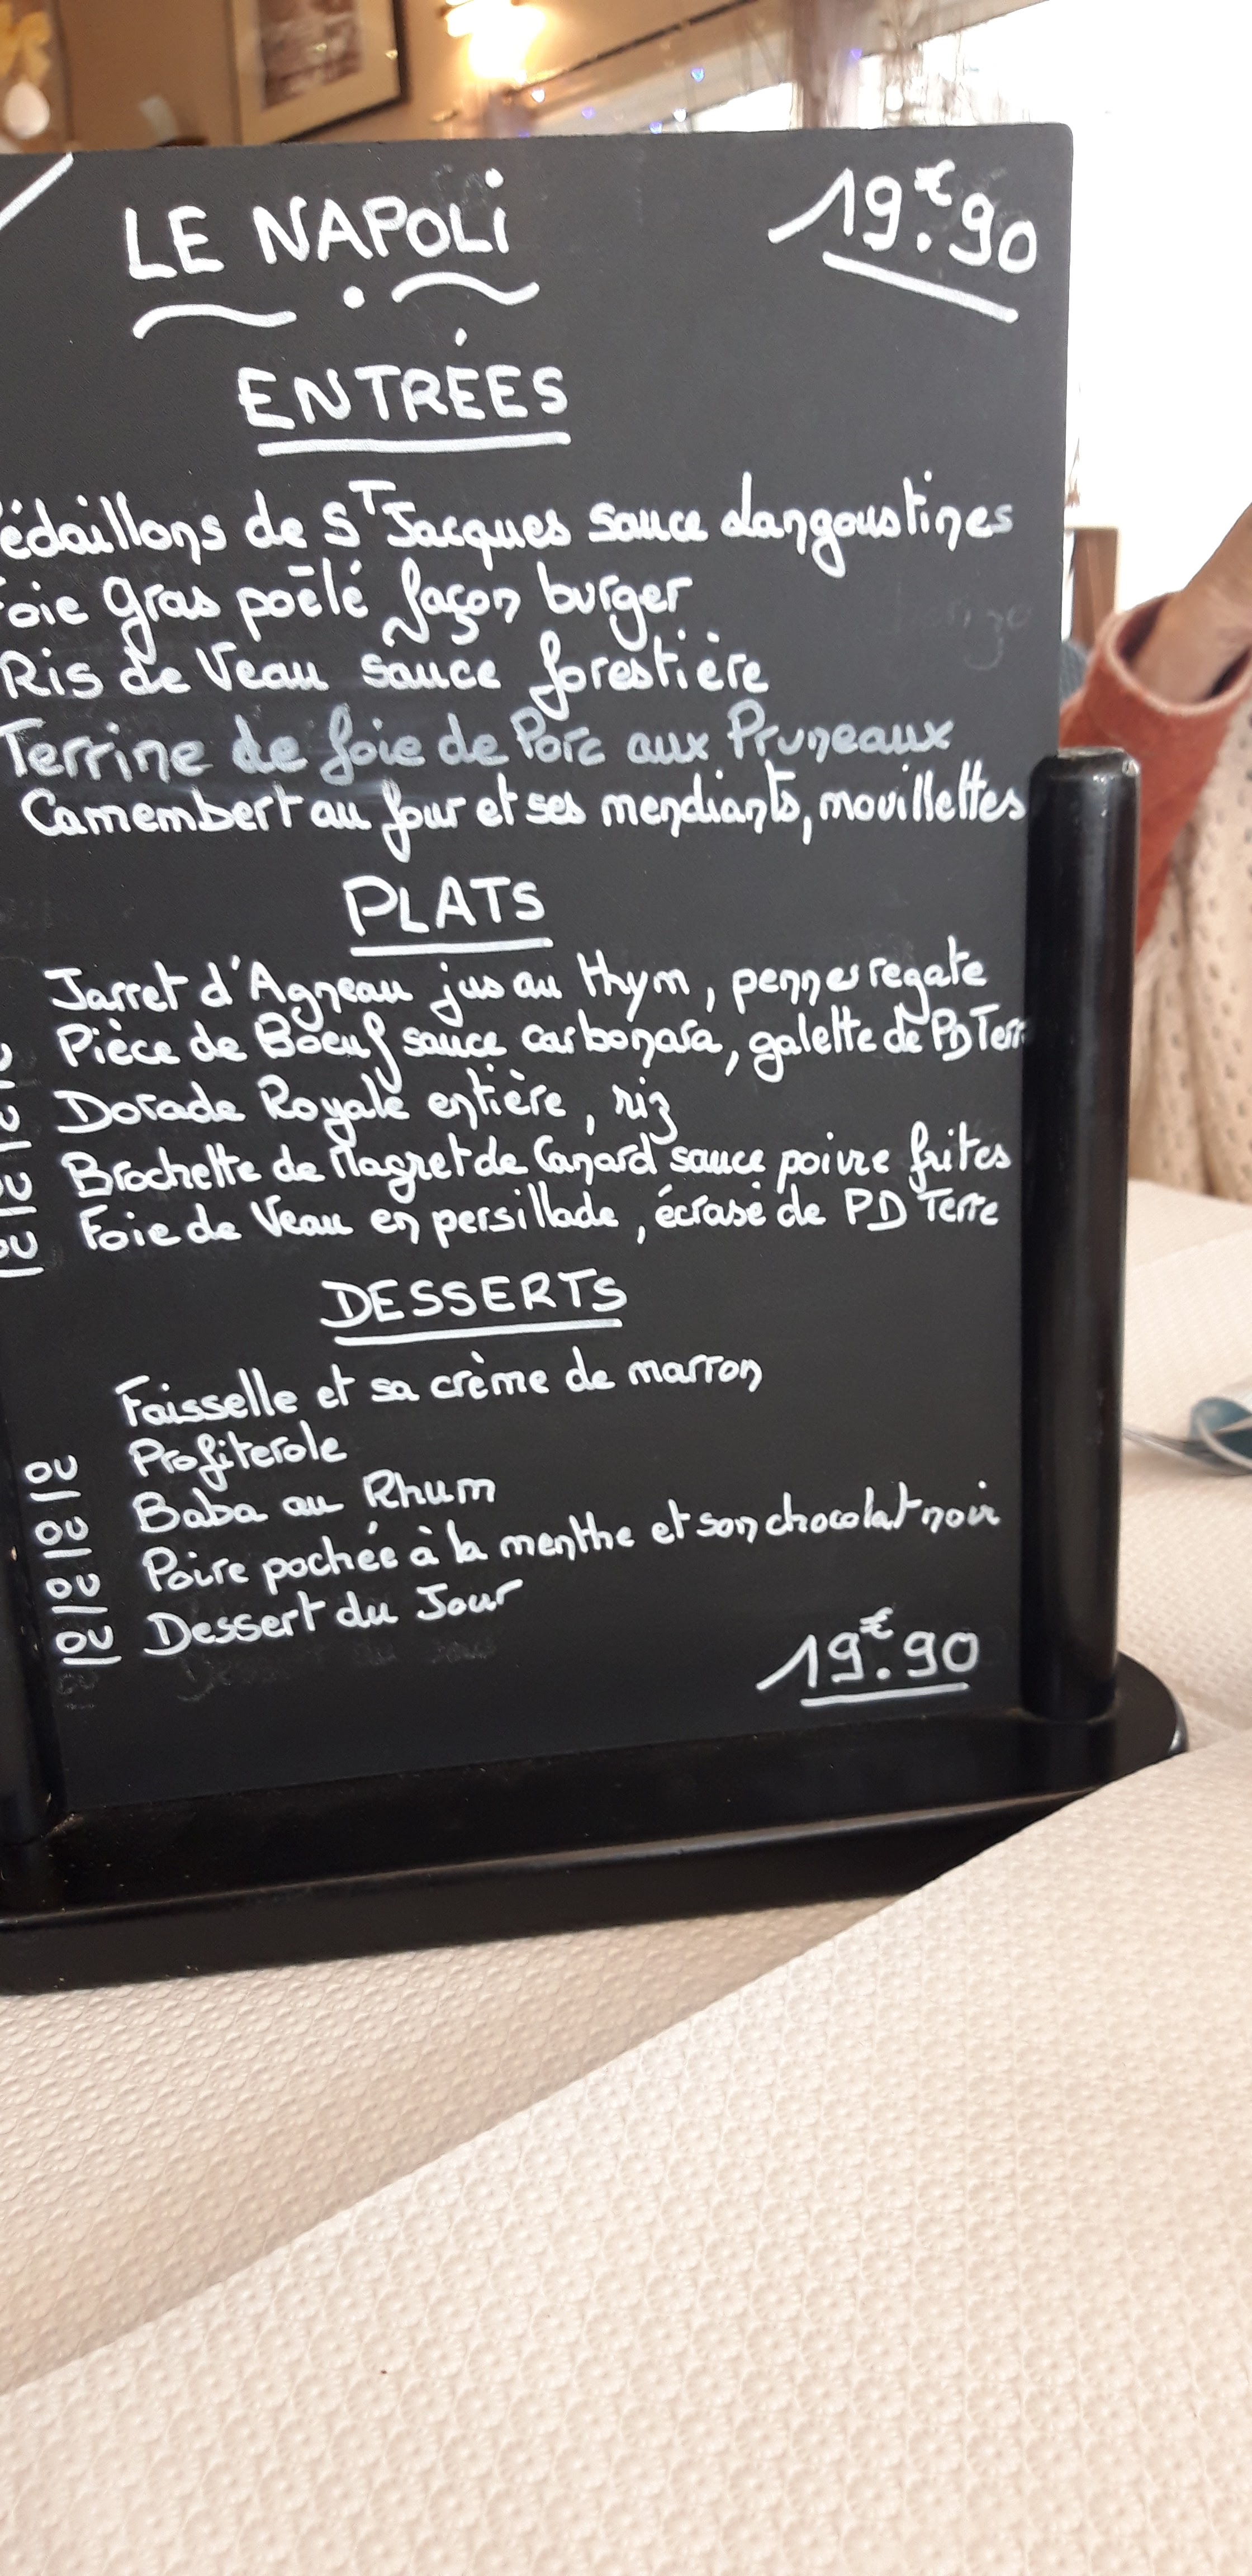 LE NAPOLI
19.€90
ENTRÉES
édaillons de ST Jacques sauce langoustines
oie gras poêlé façon burger
Ris de Veau sauce forestière
Terrine de foie de Porc aux Pruneaux
Camembert au four et ses mendiants, mouillettes
PLATS
Jarret d'Agneau jus au thym, pennes regate
Pièce de Boeuf sauce carbonara, galette de PDTerr
ou Dorade Royale entière, riz
ou Brochette de Magret de Canard sauce poivre frites
ou Foie de Veau en persillade, écrasé de PD Terre
DESSERTS
Faisselle et sa crème de marron
ou Profiterole
ou Baba au Rhum
ou Poire pochée à la menthe et son chocolat noir
ou Dessert du Jour
19.€90